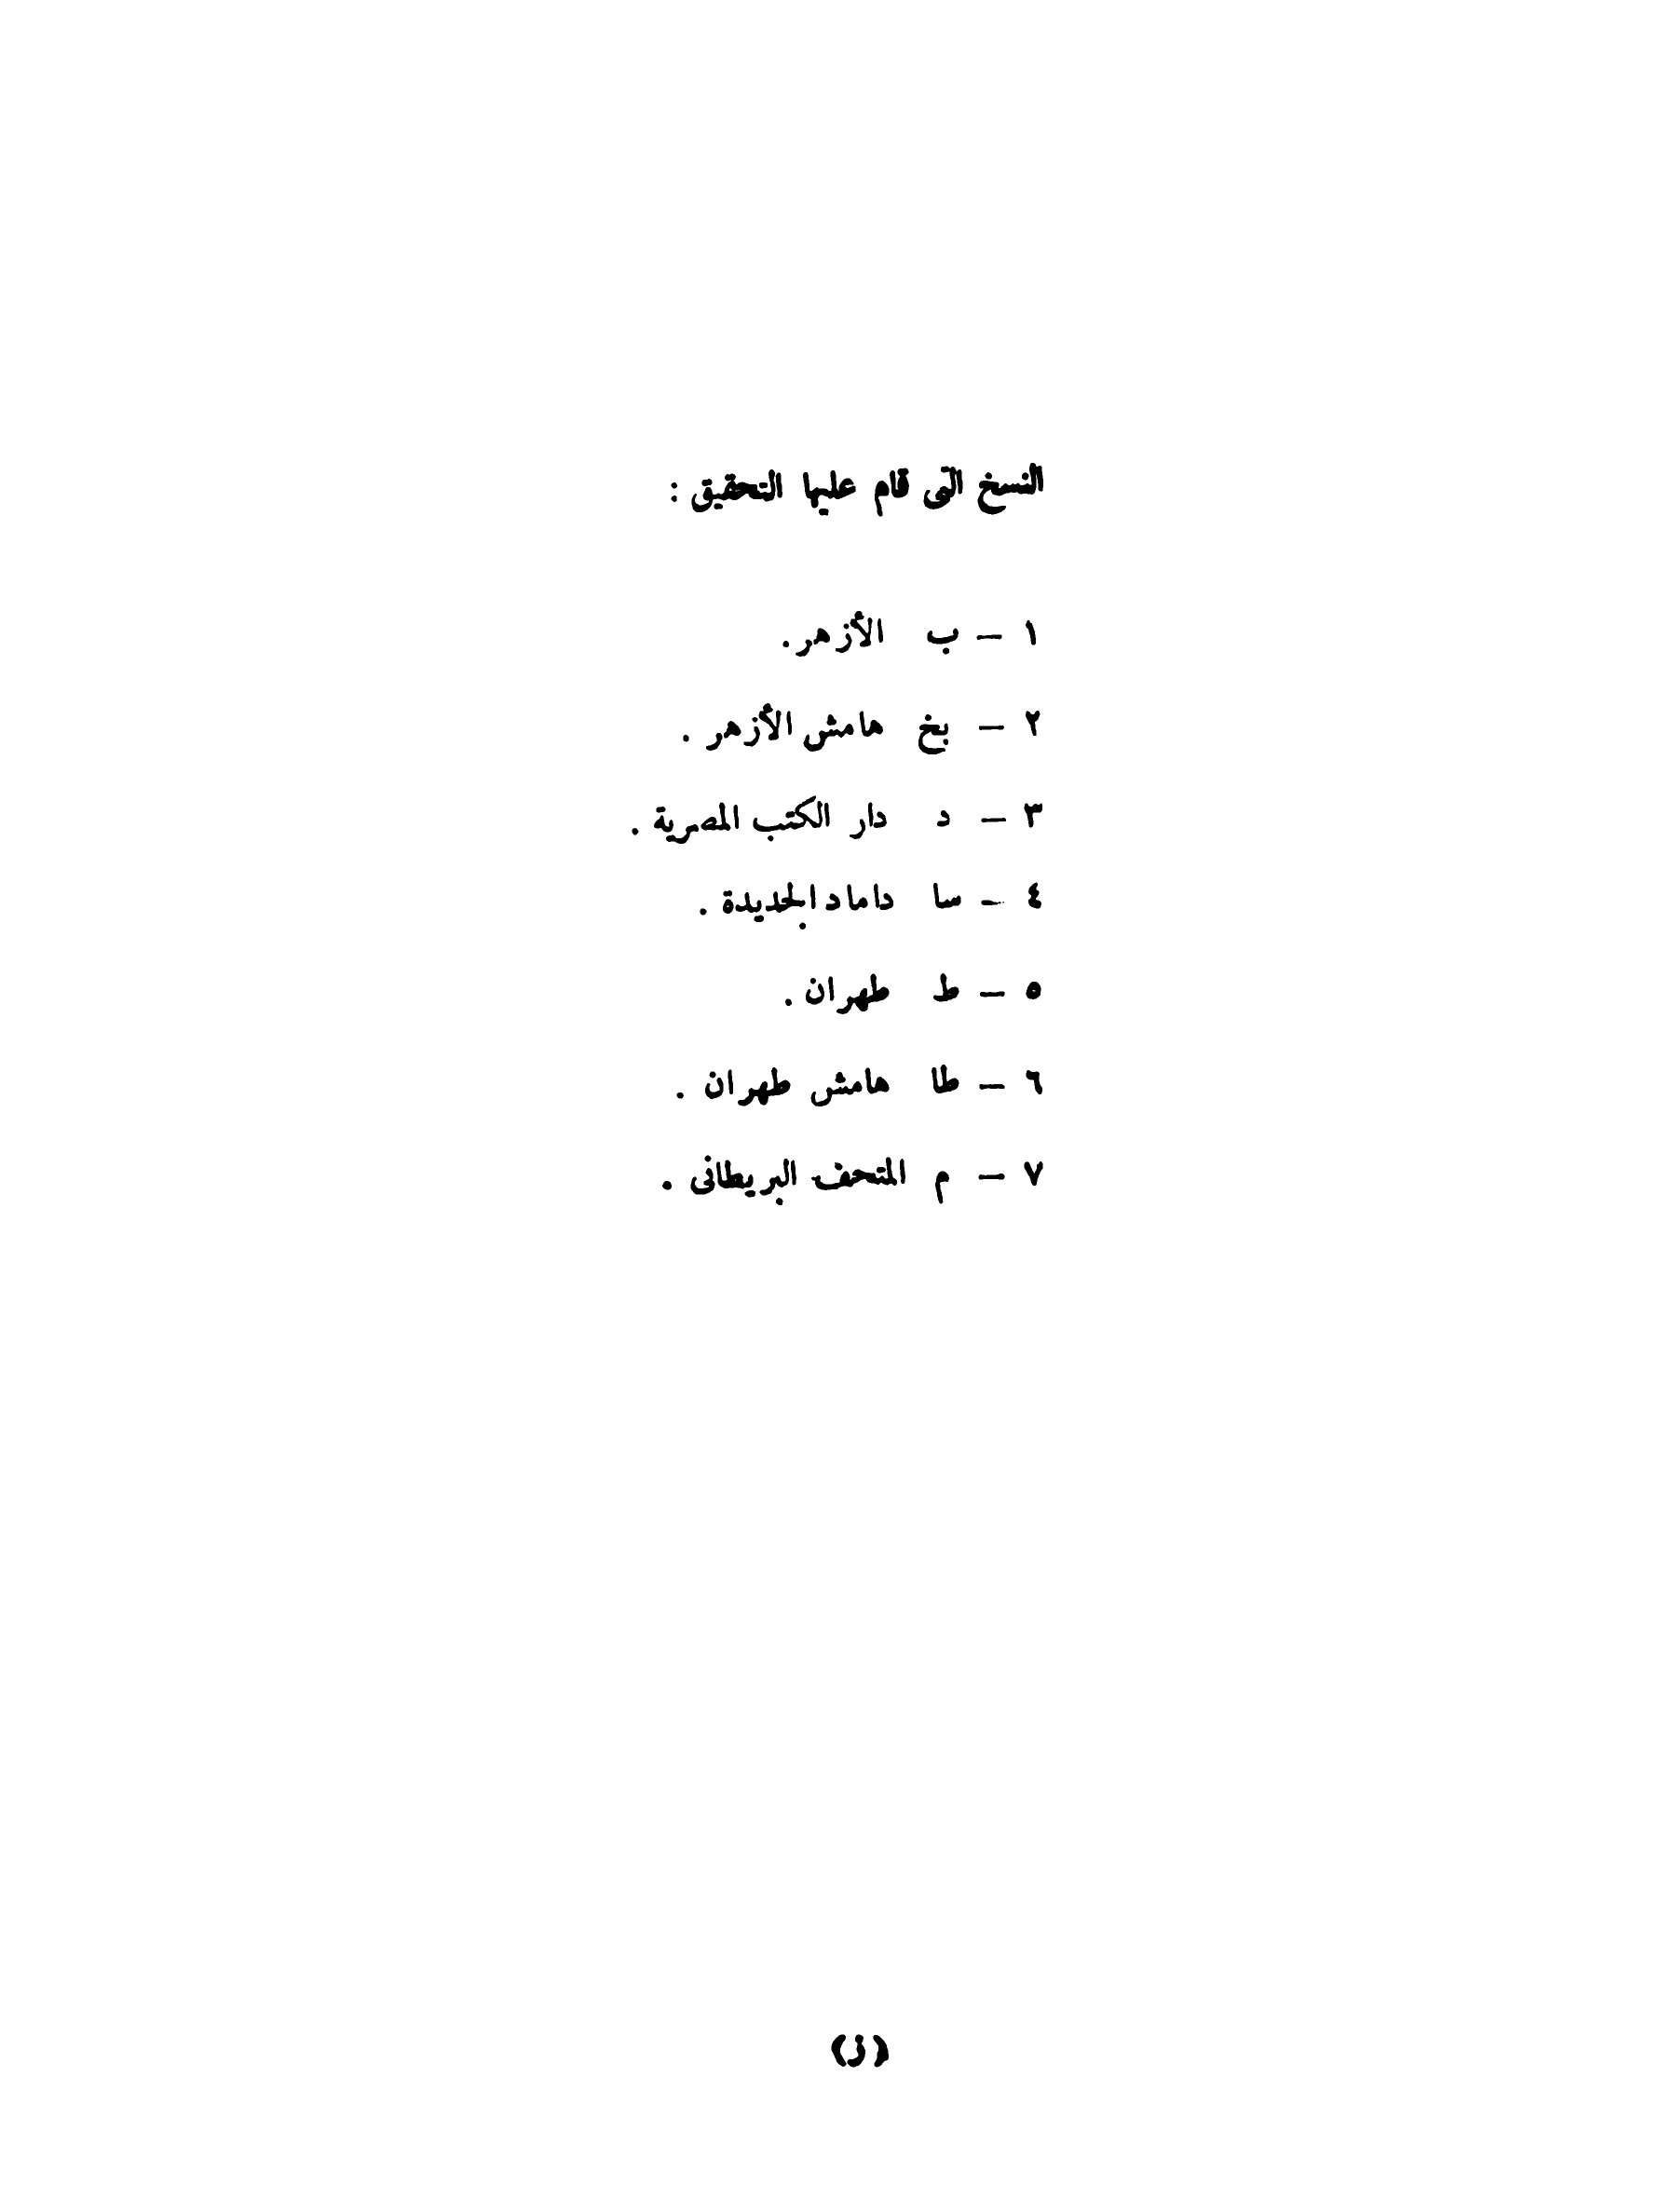 النسخ التى قام عليها التحقيق :
١ — ب الأزهر .
٢ — بخ هامش الأزهر .
٣ — د دار الكتب المصرية .
٤ — سا داماد الجديدة .
٥ — ط طهران .
٦ — طا هامش طهران .
٧ — م المتحف البريطانى .
(ز)